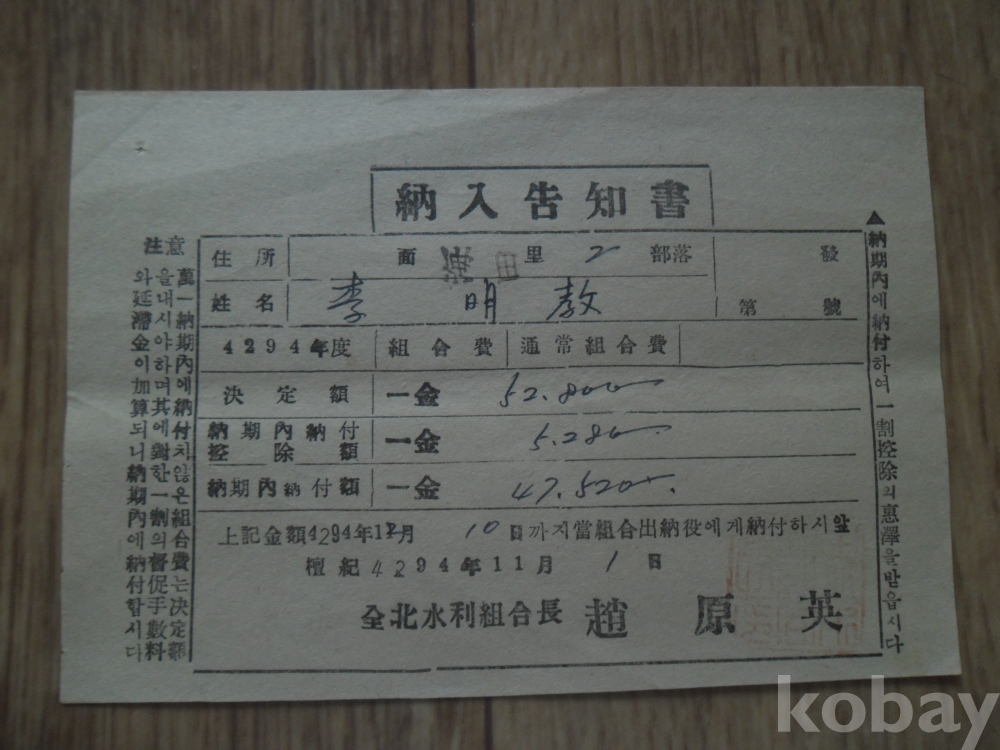 納入告知書
住所 面 里 2 部落 發
姓名 李明敎 第 號
4294年度 組合費 通常組合費
決定額 一金 52.800
納期內納付控除額 一金 5.280
納期內納付額 一金 47.520
上記金額4294年12月 10日까지當組合出納役에게納付하시앞
檀紀4294年11月 1日
全北水利組合長 趙原英
▲納期內에納付하여一割控除의惠澤을받읍시다
注意
萬一納期內에納付치않은組合費는决定額
을내시야하며其에對한一割의督促手數料
와延滯金이加算되니納期內에納付합시다
kobay